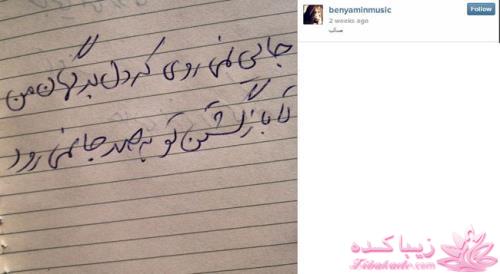 جائی نمی روی که دل بد گمان من
تا بازگشتن تو به صد جا نمی رود
benyaminmusic
2 weeks ago
صائب
Follow
زیباکده
Zibakade.com